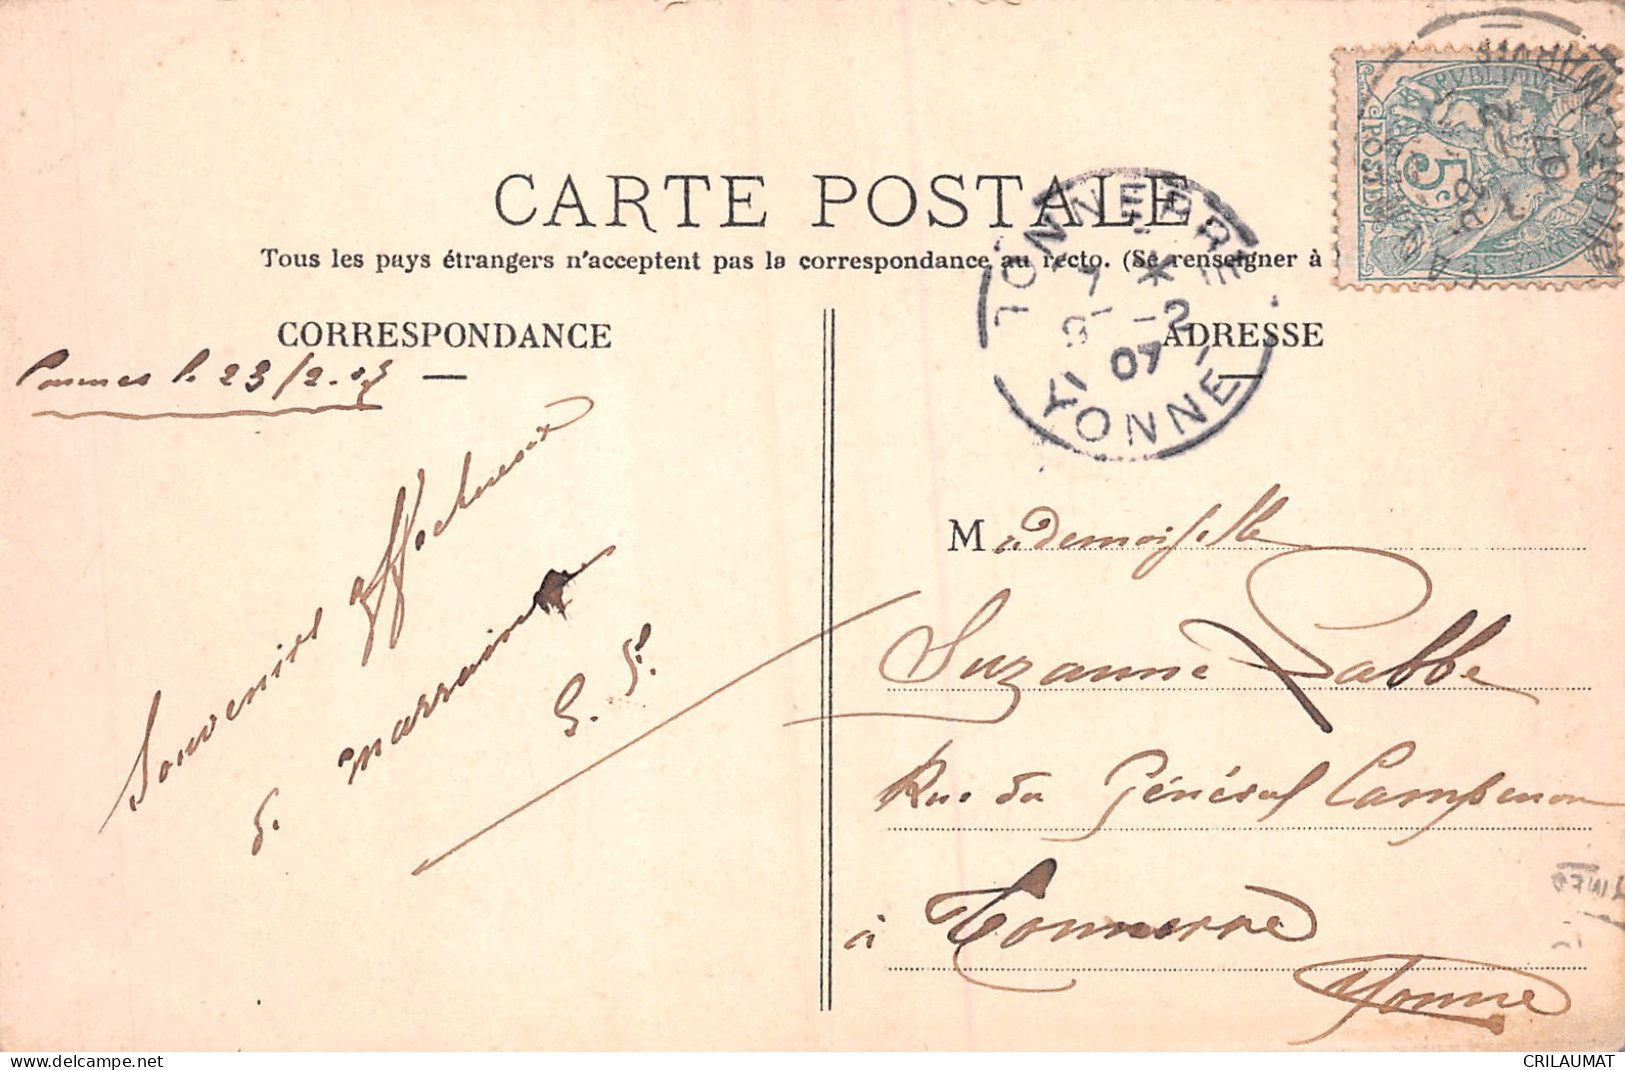 CARTE POSTALE
Tous les pays étrangers n'acceptent pas la correspondance au recto. (Se renseigner à
CORRESPONDANCE
ADRESSE
le 23/2.07
Souvenirs affectueux
marraine
Mademoiselle
Suzanne Labbe
Rue du Général Campenon
à Tonnerre
Yonne
TONNERRE
2
07
YONNE
POSTES
5c
CRILAUMAT
delcampe.net